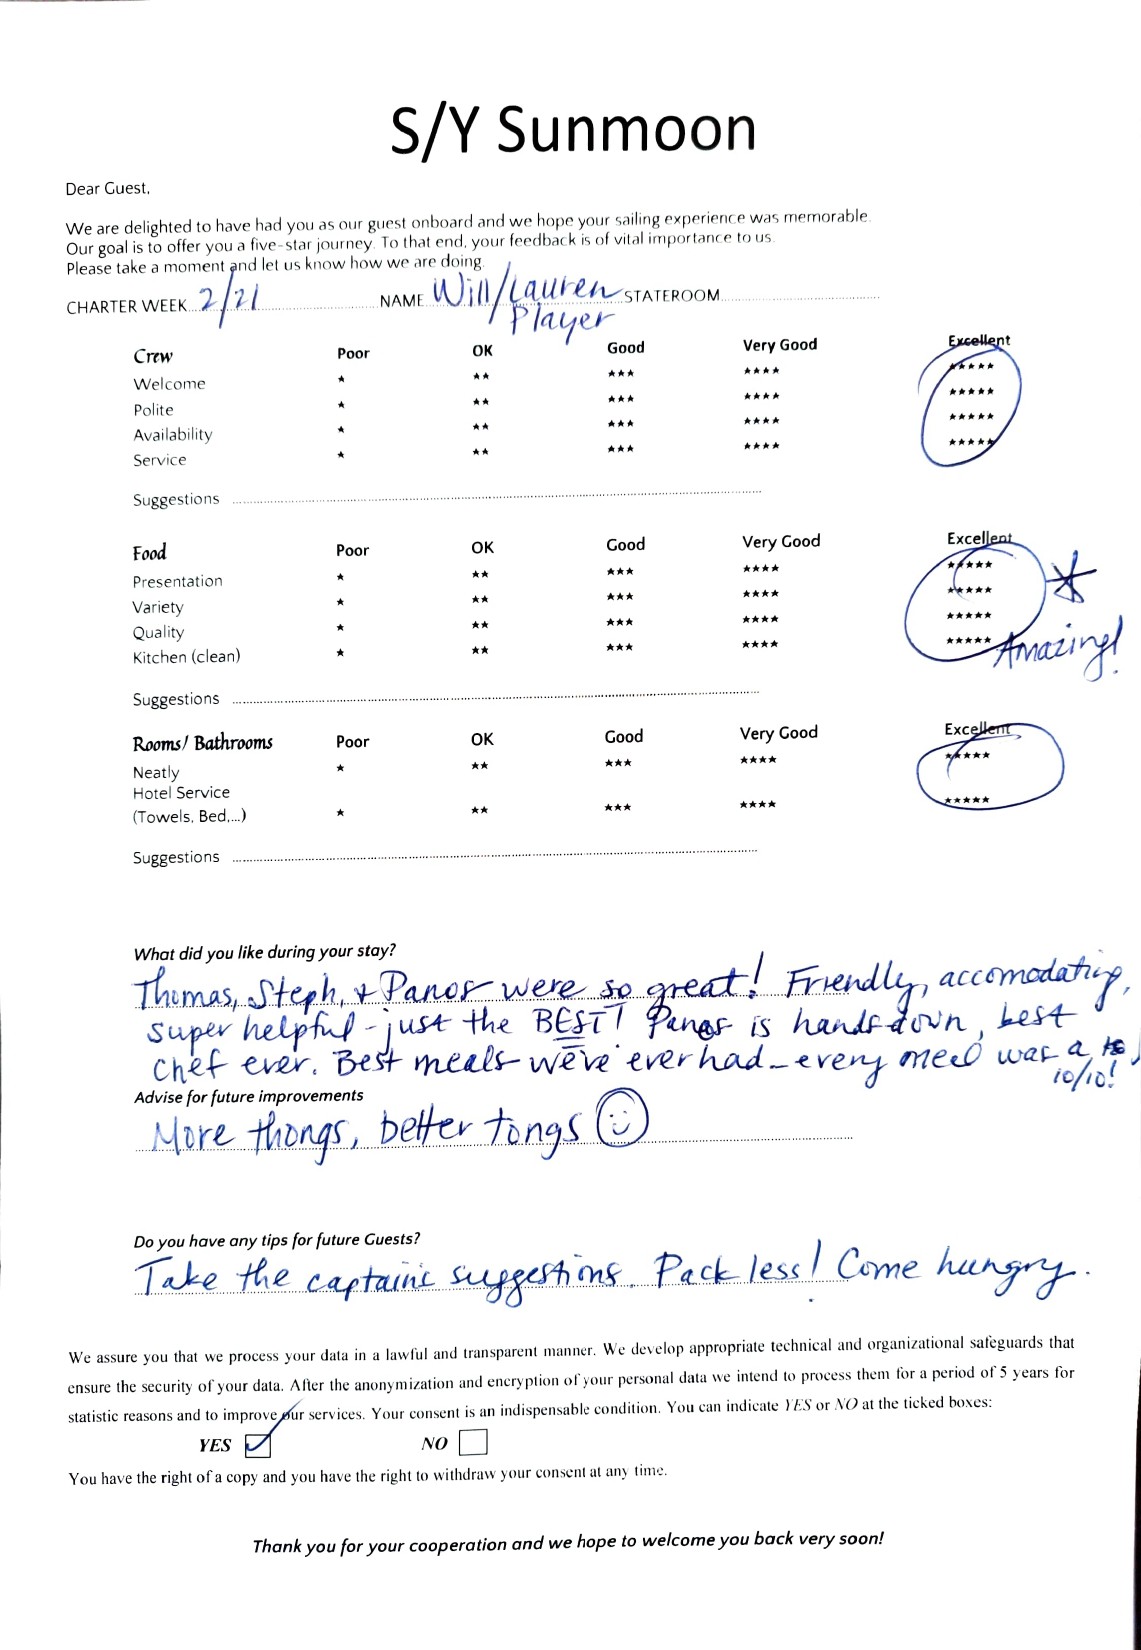 S/Y Sunmoon
Dear Guest,
We are delighted to have had you as our guest onboard and we hope your sailing experience was memorable.
Our goal is to offer you a five-star journey. To that end, your feedback is of vital importance to us.
Please take a moment and let us know how we are doing.
CHARTER WEEK 2/21 NAME Will/Lauren STATEROOM
Player
Crew Poor OK Good Very Good Excellent
Welcome ★ ★★ ★★★ ★★★★ ★★★★★
Polite ★ ★★ ★★★ ★★★★ ★★★★★
Availability ★ ★★ ★★★ ★★★★ ★★★★★
Service ★ ★★ ★★★ ★★★★ ★★★★★
Suggestions
Food Poor OK Good Very Good Excellent
Presentation ★ ★★ ★★★ ★★★★ ★★★★★
Variety ★ ★★ ★★★ ★★★★ ★★★★★
Quality ★ ★★ ★★★ ★★★★ ★★★★★
Kitchen (clean) ★ ★★ ★★★ ★★★★ ★★★★★ Amazing!
Suggestions
Rooms/ Bathrooms Poor OK Good Very Good Excellent
Neatly ★ ★★ ★★★ ★★★★ ★★★★★
Hotel Service
(Towels, Bed,...) ★ ★★ ★★★ ★★★★ ★★★★★
Suggestions
What did you like during your stay?
Thomas, Steph, + Panos were so great! Friendly, accomodating,
super helpful - just the BEST! Panos is hands down, best
chef ever. Best meals we've ever had - every meal was a
10/10!
Advise for future improvements
More thongs, better tongs ☺
Do you have any tips for future Guests?
Take the captain's suggestions. Pack less! Come hungry.
We assure you that we process your data in a lawful and transparent manner. We develop appropriate technical and organizational safeguards that
ensure the security of your data. After the anonymization and encryption of your personal data we intend to process them for a period of 5 years for
statistic reasons and to improve our services. Your consent is an indispensable condition. You can indicate YES or NO at the ticked boxes:
YES ☑ NO ☐
You have the right of a copy and you have the right to withdraw your consent at any time.
Thank you for your cooperation and we hope to welcome you back very soon!